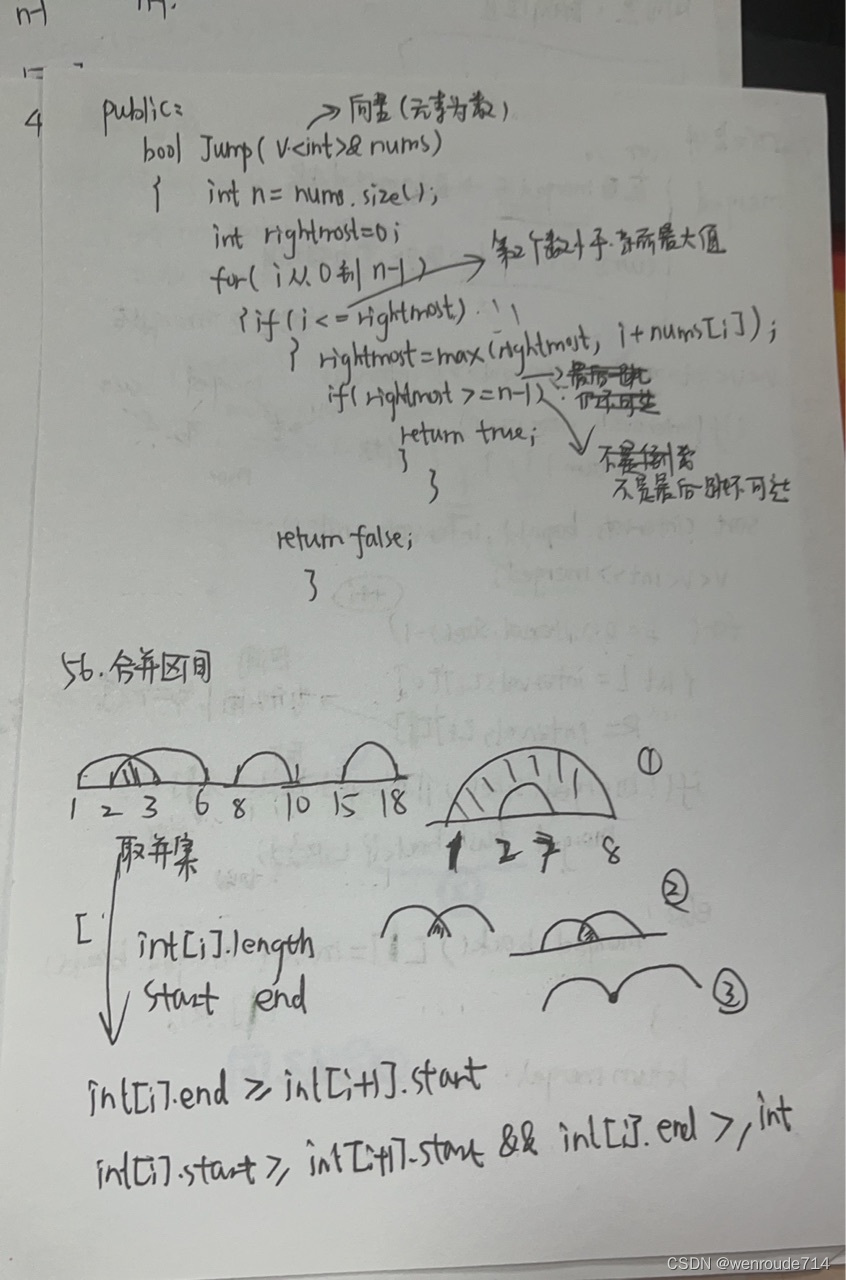 n-1
4
public:
→ 向量(元素为数)
bool Jump( V<int>& nums)
{ int n= nums.size();
int rightmost=0;
for( i从0到 n-1 )
第2个数小于.东西最大值
{if (i <= rightmost)
} rightmost=max(rightmost, i+nums[i]);
if( rightmost >=n-1)
return true;
}
不是最后一跳不可达
}
return false;
}
56.合并区间
1 2 3 6 8 10 15 18
①
1 2 7 8
取并集
②
[ int[i].length
start end
③
int[i].end ≥ int[i+1].start
int[i].start ≥, int[i+1].start && int[i].end ≥, int
CSDN @wenroude714